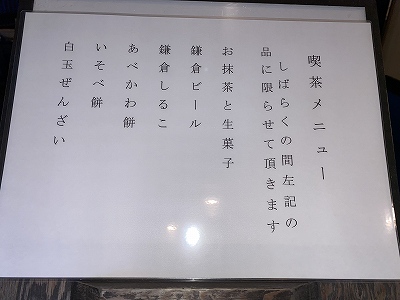 喫茶メニュー
しばらくの間左記の
品に限らせて頂きます
お抹茶と生菓子
鎌倉ビール
鎌倉しるこ
あべかわ餅
いそべ餅
白玉ぜんざい